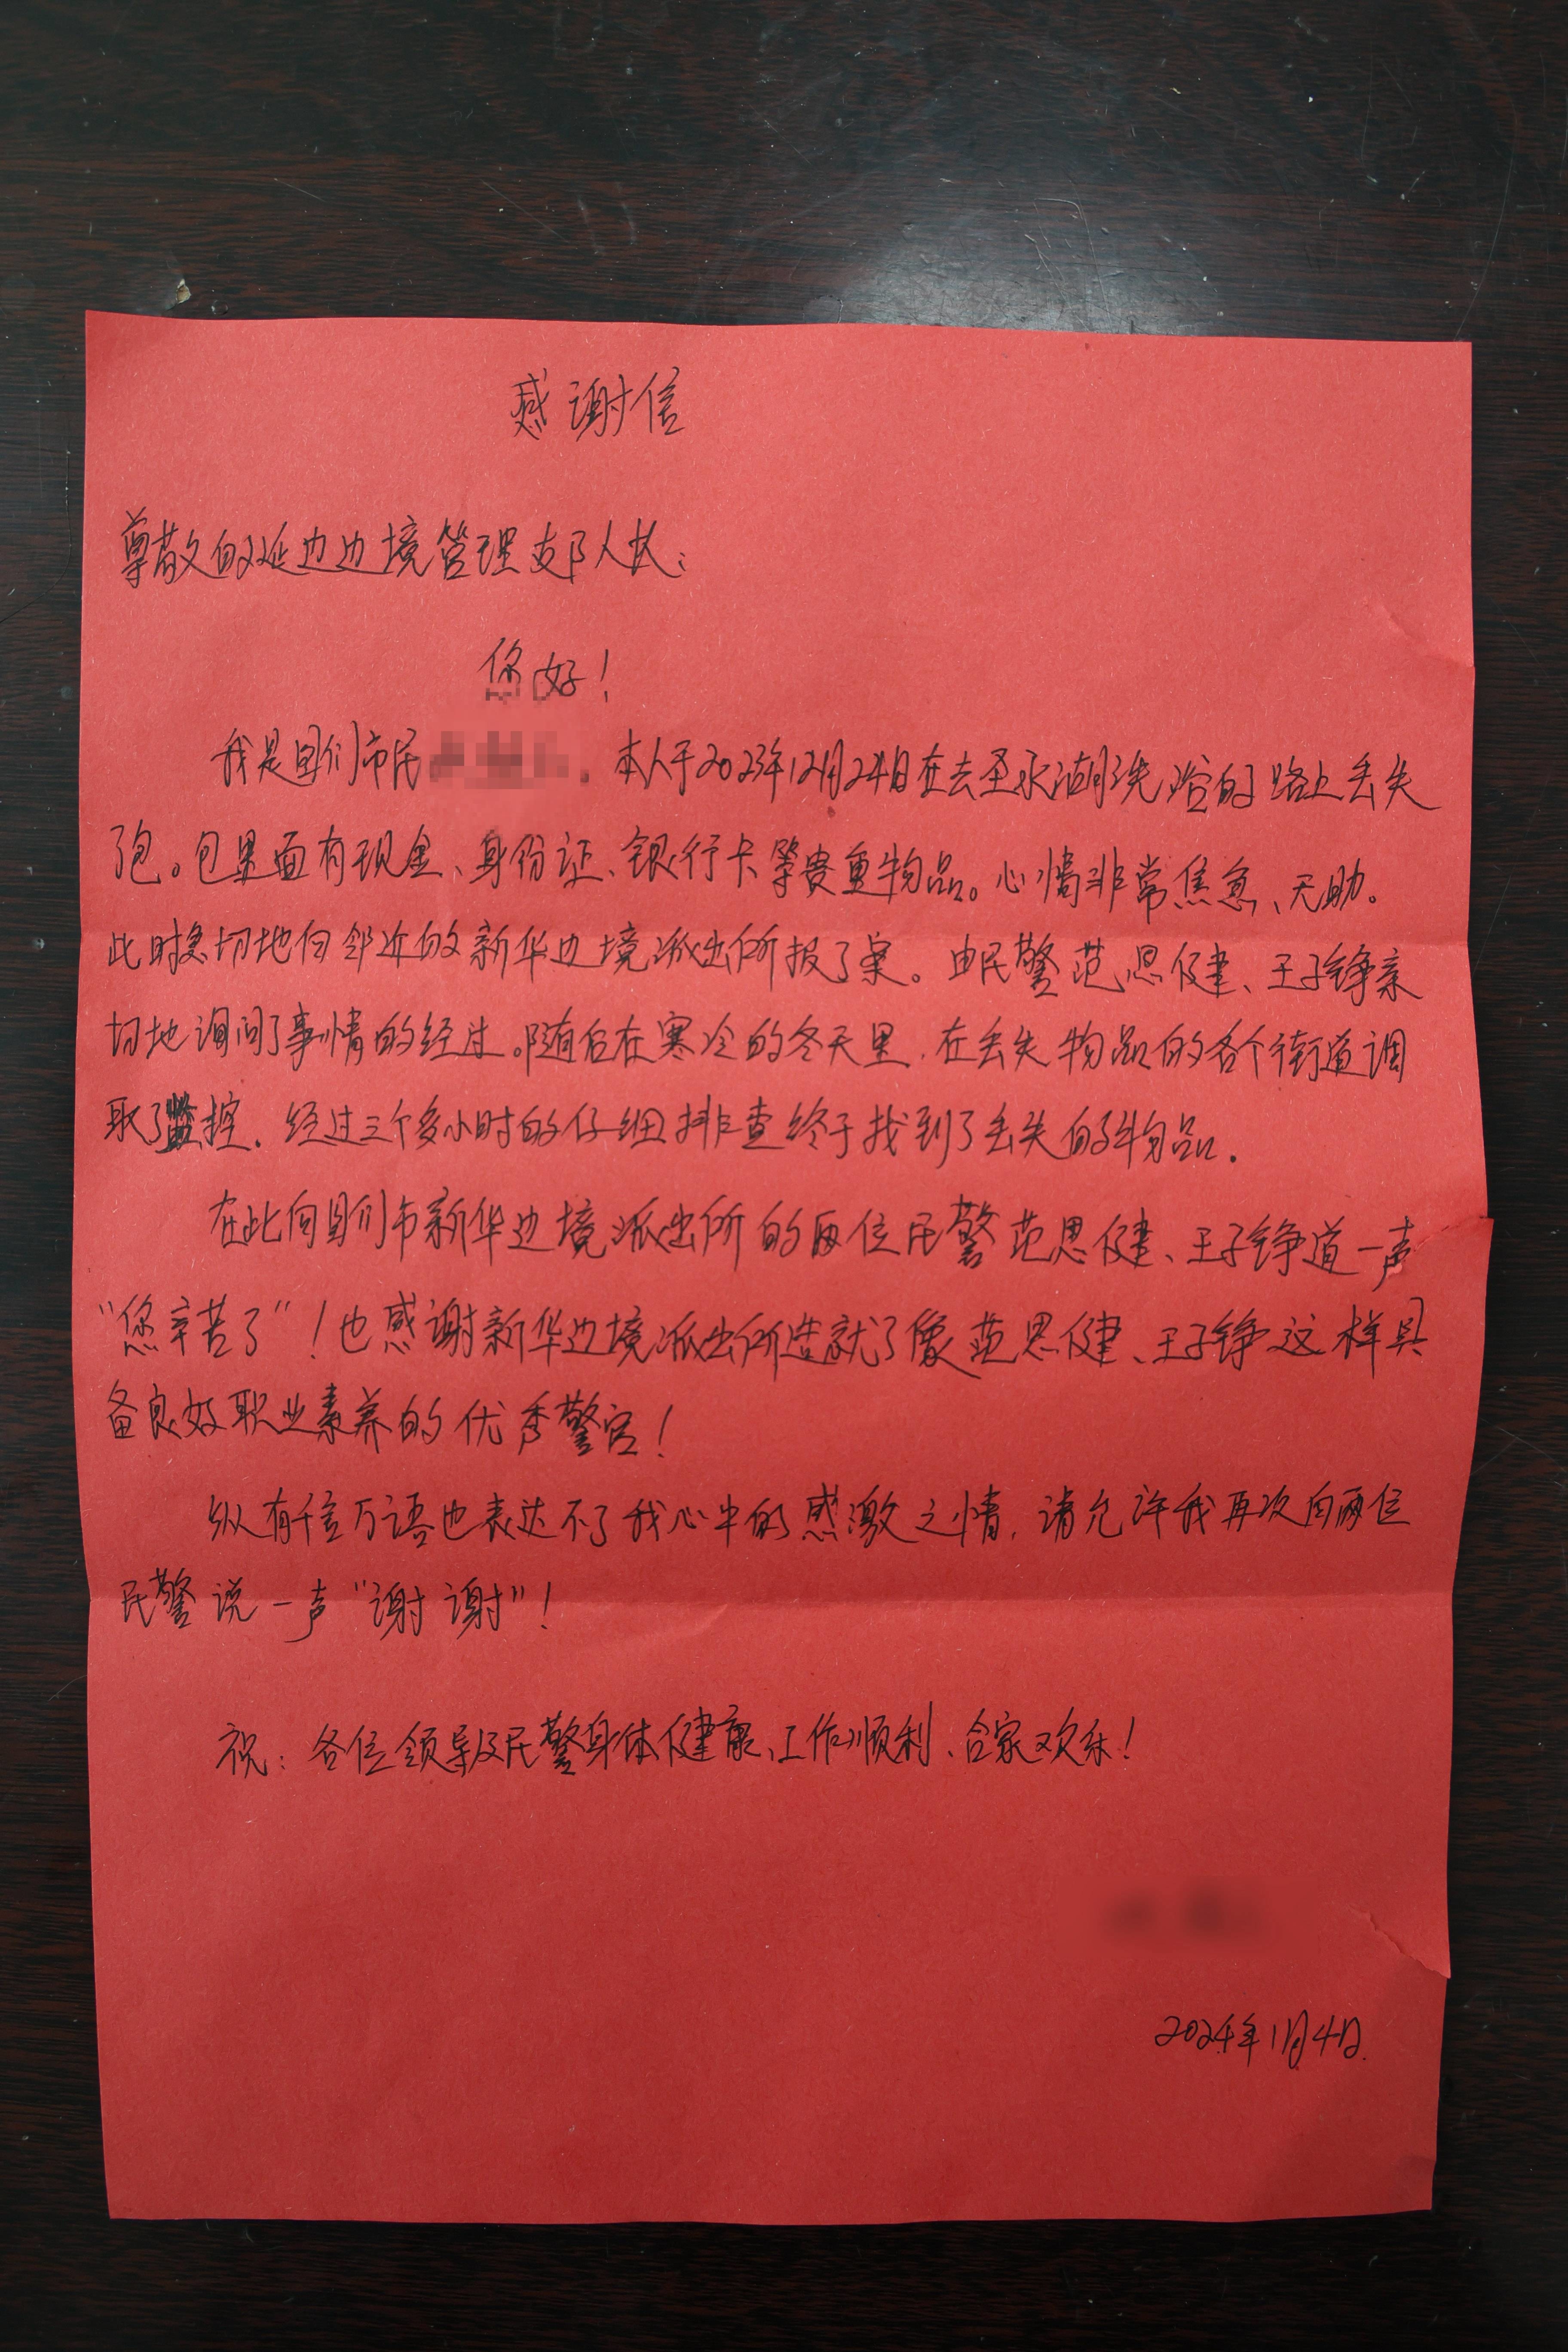 感谢信
尊敬的延边边境管理支队人民:
您好!
我是图们市民 。本人于2023年12月24日在去圣水湖洗浴的路上丢失
了包。包里面有现金、身份证、银行卡等贵重物品。心情非常焦急、无助。
此时急切地向邻近的新华边境派出所报了案。由民警范思健、王子铮亲
切地询问了事情的经过。随后在寒冷的冬天里,在丢失物品的各个街道调
取了监控。经过三个多小时的仔细排查终于找到了丢失的物品。
在此向图们市新华边境派出所的两位民警范思健、王子铮道一声
“您辛苦了”!也感谢新华边境派出所造就了像范思健、王子铮这样具
备良好职业素养的优秀警官!
纵有千言万语也表达不了我心中的感激之情,请允许我再次向两位
民警说一声“谢谢”!
祝:各位领导及民警身体健康、工作顺利、合家欢乐!
2024年1月4日